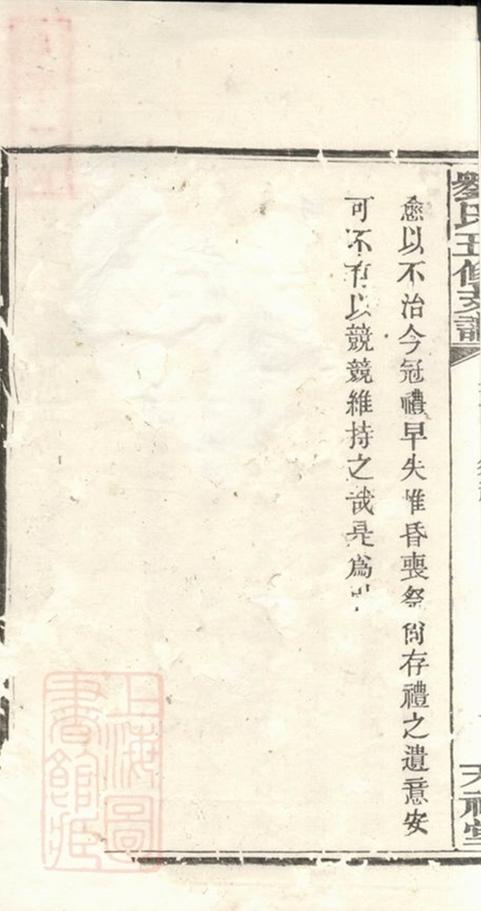 劉氏五修支譜
愈以不治今冠禮早失惟昏喪祭尙存禮之遺意安
可不有以競競維持之哉是爲
上海圖
書館藏